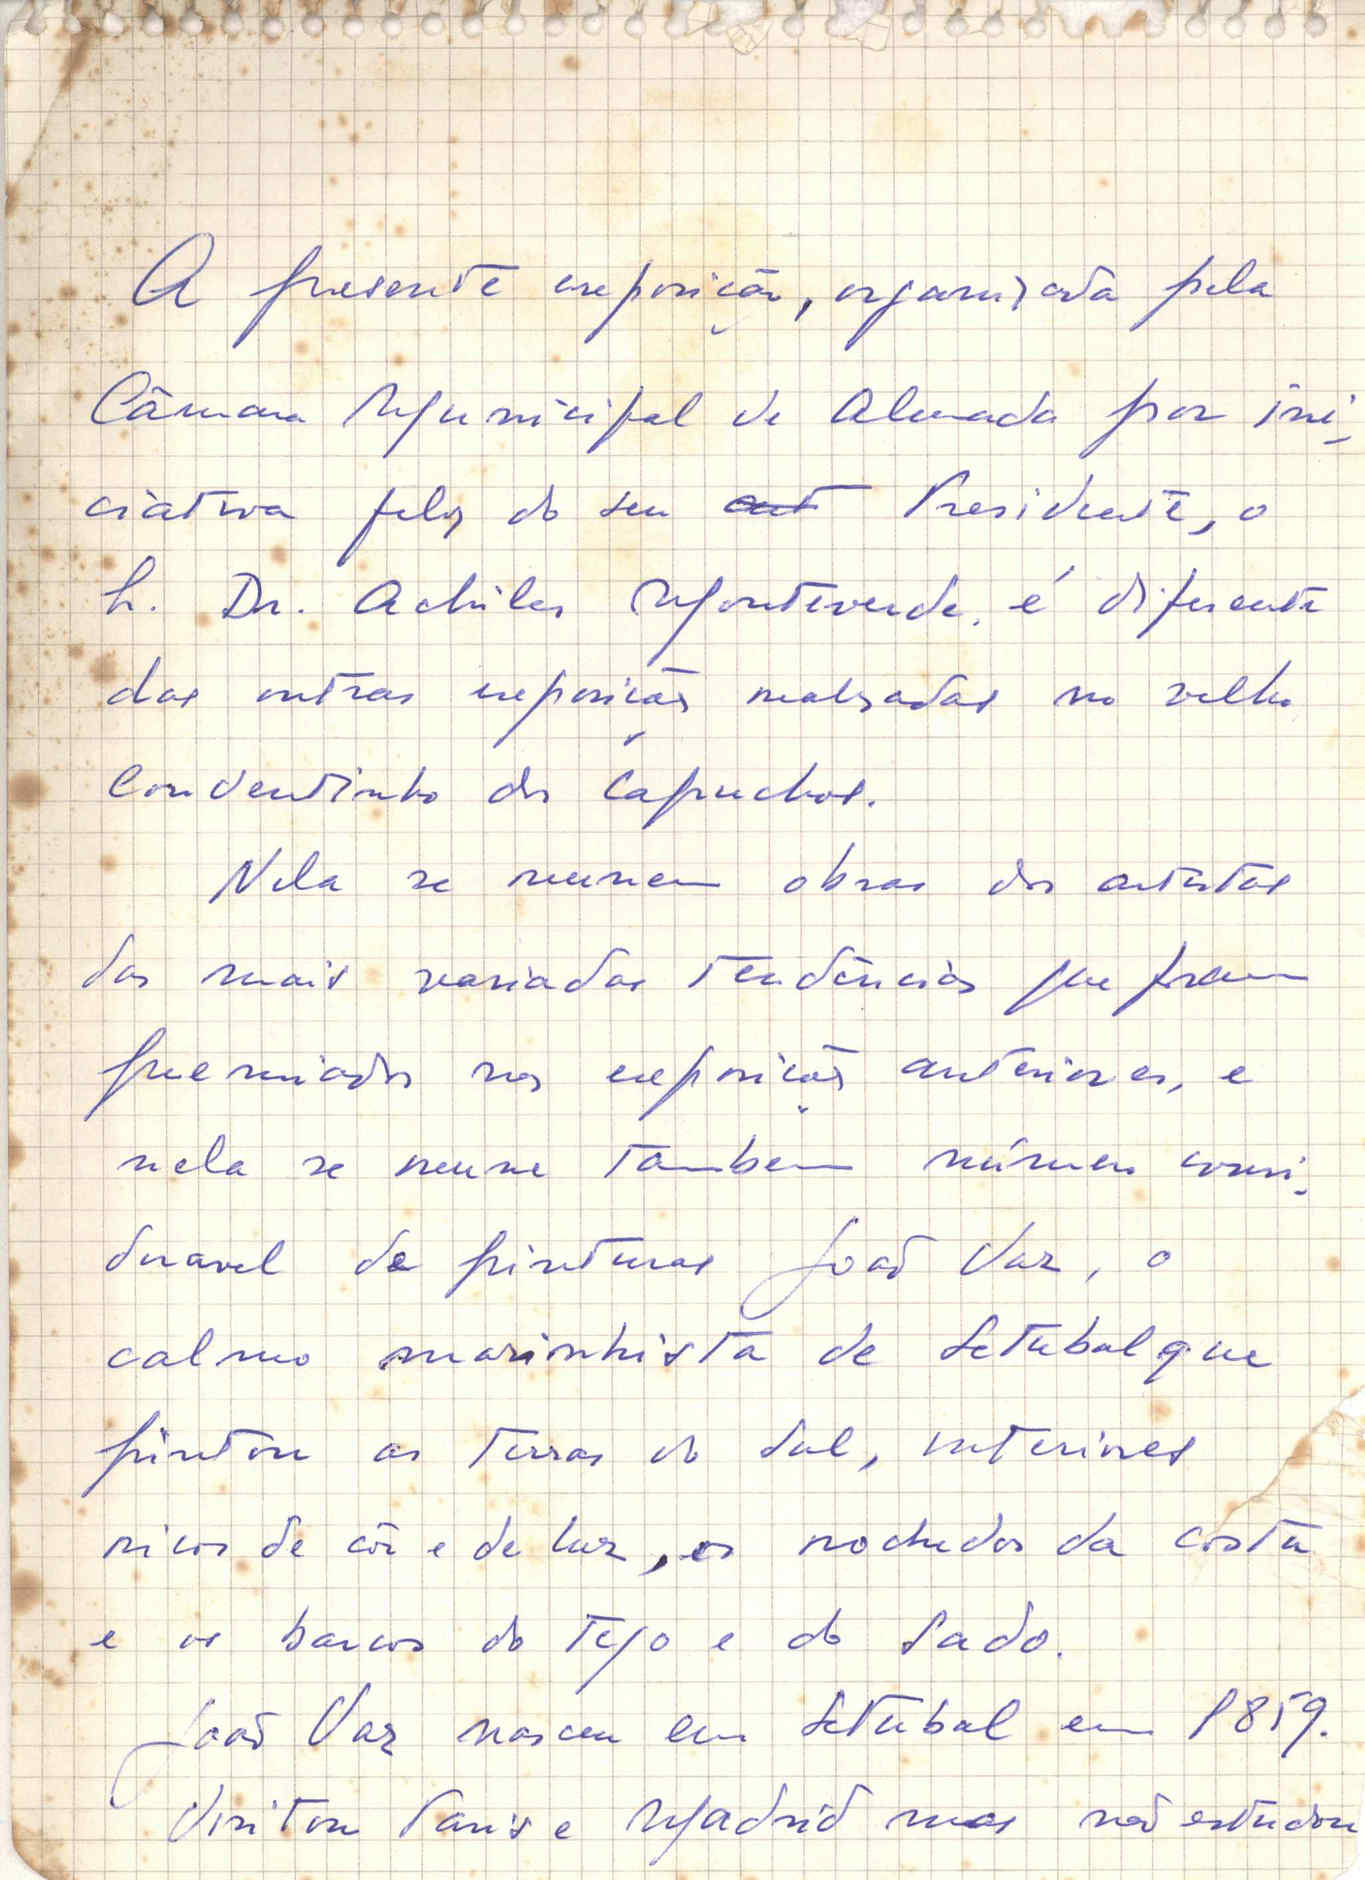 A presente exposição, organizada pela
Câmara Municipal de Almada por ini-
ciativa feliz do seu Presidente, o
Sr. Dr. Achiles Monteverde, é diferente
das outras exposições realizadas no velho
Conventinho dos Capuchos.
Nela se reunem obras dos artistas
das mais variadas tendências que foram
premiados nas exposições anteriores, e
nela se reune tambem número consi-
deravel de pinturas João Vaz, o
calmo marinhista de Setubal que
pintou as terras do Sul, interiores
ricos de côr e de luz, os rochedos da costa
e os barcos do Tejo e do Sado.
João Vaz nasceu em Setúbal em 1859.
Visitou Paris e Madrid mas não estudou